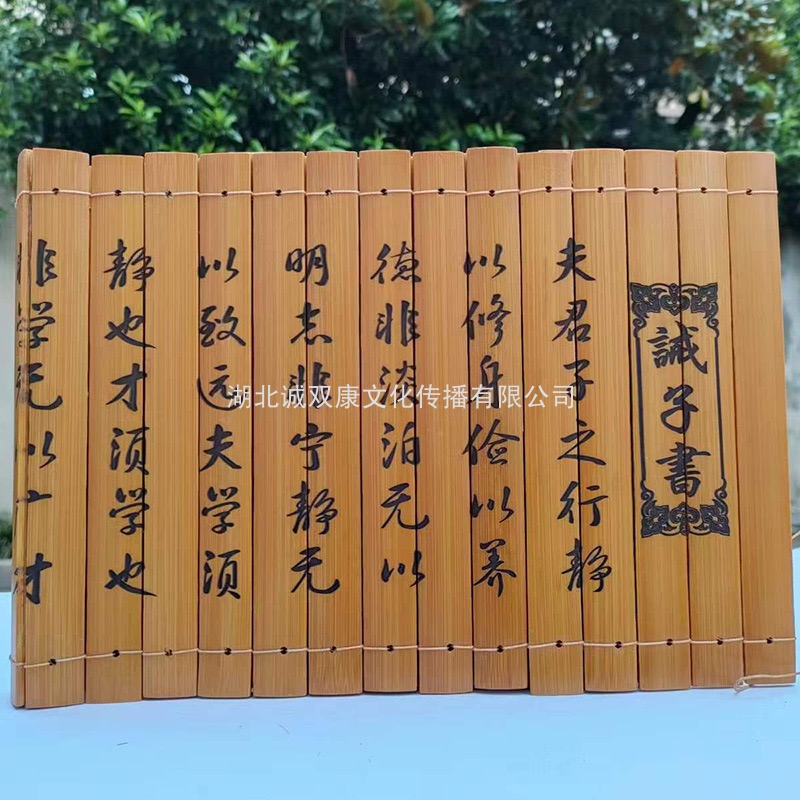 誡子書
夫君子之行静
以修身俭以养
德非淡泊无以
明志非宁静无
以致远夫学须
静也才须学也
非学无以广才
湖北诚双康文化传播有限公司